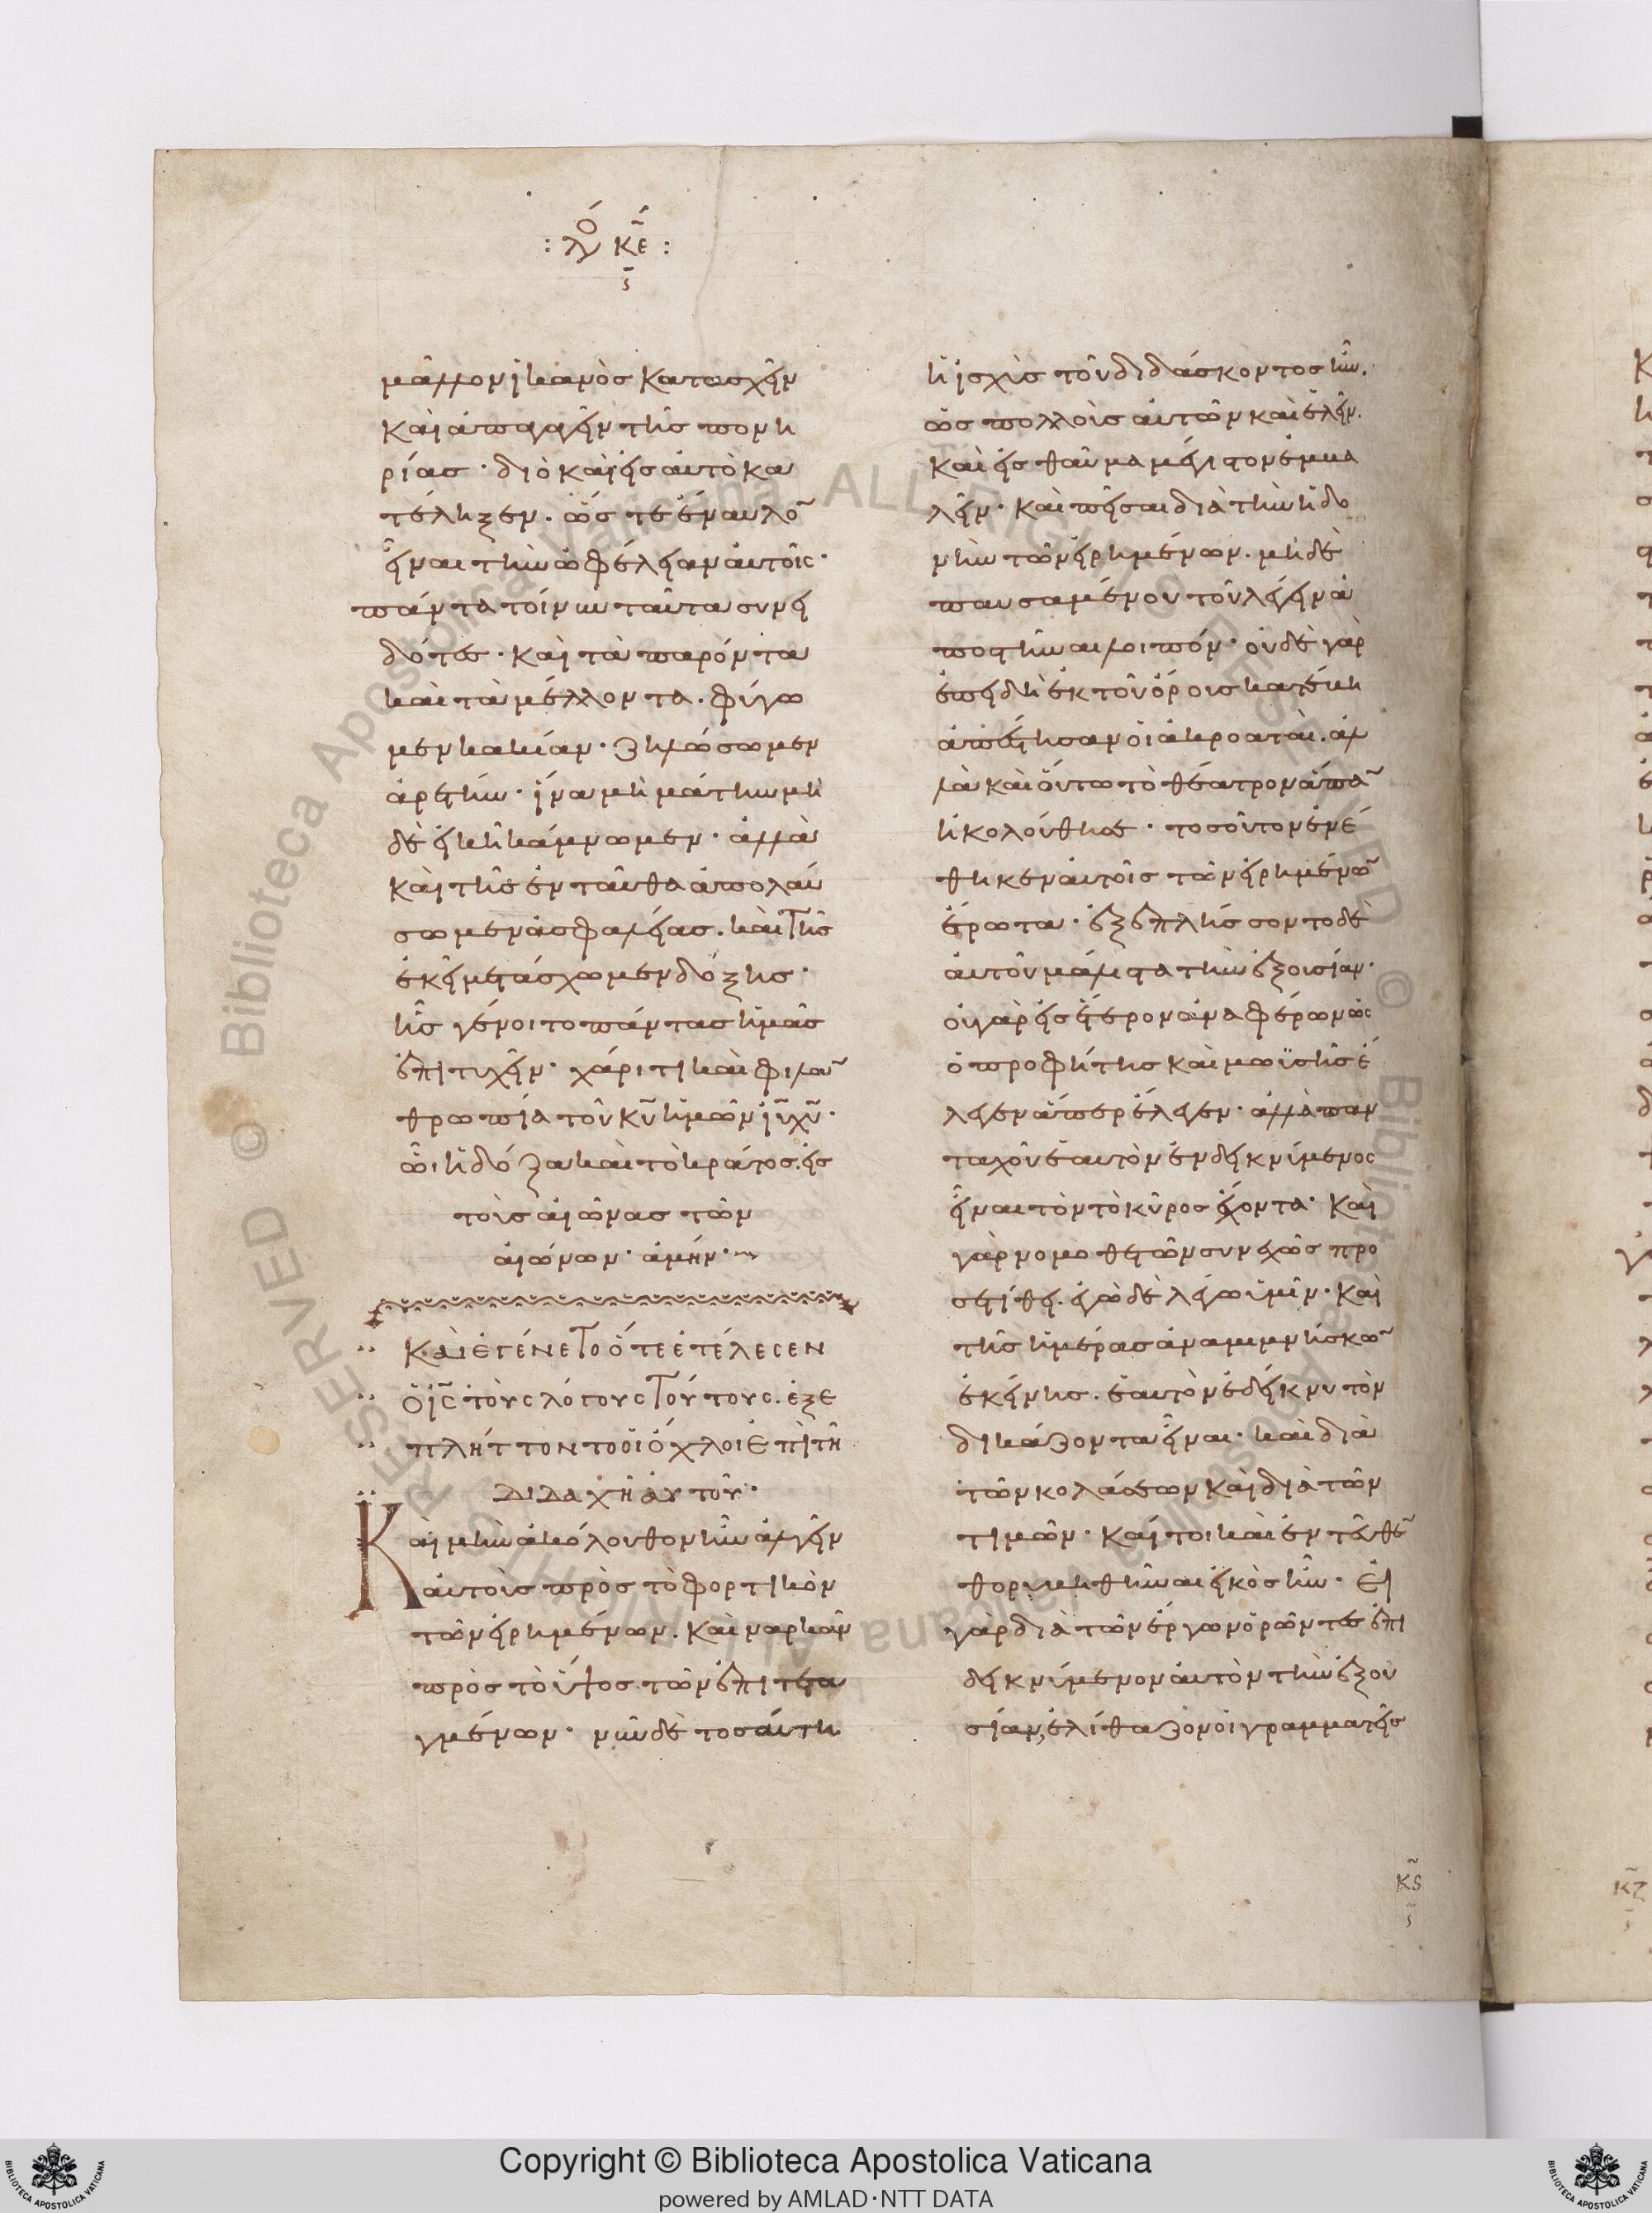 : λό κε :
ϛ
μᾶλλον ἱκανὸς κατασχεῖν
καὶ ἀποστῆν τῆς πονη
ρίας · διὸ καὶ εἰς αὐτὸ κα
τέληξεν . ὥς τε ἔναυλο͂
εἶναι τὴν ὠφέλειαν αὐτοῖς ·
πάντα τοίνυν ταῦτα συνει
δότες · καὶ τὰ παρόντα
καὶ τὰ μέλλοντα . φύγω
μεν κακίαν · ζηλώσωμεν
ἀρετήν · ἵνα μὴ μάτην μη
δὲ εἰκῆ κάμνωμεν · ἀλλὰ
καὶ τῆς ἐνταῦθα ἀπολαύ
σωμεν ἀσφαλείας . καὶ τῆς
ἐκεῖ μετάσχωμεν δόξης ·
ἧς γένοιτο πάντας ἡμᾶς
ἐπιτυχεῖν · χάριτι καὶ φιλαν͂
θρωπία τοῦ κυ ἡμῶν ιυ χυ ·
ὧι ἡ δόξα καὶ τὸ κράτος . εἰς
τοὺς αἰῶνας τῶν
αἰώνων · ἀμήν ·
Καὶ ἐγένετο ὅτε ἐτέλεσεν
ὁ ις τοὺς λόγους τούτους . ἐξε
πλήττοντο οἱ ὄχλοι ἐπὶ τῆ
διδαχῆ αὐτοῦ ·
Καὶ μὴν ἀκόλουθον ἦν ἀλγεῖν
αὐτοὺς πρὸς τὸ φορτικὸν
τῶν εἰρημένων . καὶ ναρκᾶν
πρὸς τὸ ὕψος τῶν ἐπιτετα
γμένων · νῦν δὲ τοσαύτη
ἡ ἰσχὺς τοῦ διδάσκοντος ἦν .
ὡς πολλοὺς αὐτῶν καὶ ἑλεῖν .
καὶ εἰς θαῦμα μέγιστον ἐμβα
λεῖν · καὶ πεῖσαι διὰ τὴν ἡδο
νὴν τῶν εἰρημένων . μηδὲ
παυσαμένου τοῦ λέγειν ἀ
ποστῆναι λοιπόν · οὐδὲ γὰρ
ἐπειδὴ ἐκ τοῦ ὄρους κατέβη
ἀπέστησαν οἱ ἀκροαταί . ἀλ
λὰ καὶ οὕτω τὸ θέατρον ἅπᾶ
ἠκολούθησε · τοσοῦτον ἐνέ
θηκεν αὐτοῖς τῶν εἰρημένῶ
ἔρωτα · ἐξεπλήσσοντο δὲ
αὐτοῦ μάλιστα τὴν ἐξουσίαν ·
οὐ γὰρ εἰς ἕτερον ἀναφέρων ὡς
ὁ προφήτης καὶ μωϋσῆς ἔ
λεγεν ἅπερ ἔλεγεν · ἀλλὰ παν
ταχοῦ ἑαυτὸν ἐνδεικνύμενος
εἶναι τὸν τὸ κῦρος ἔχοντα · καὶ
γὰρ νομοθετῶν συνεχῶς προ
σετίθει . ἐγὼ δὲ λέγω ὑμῖν · καὶ
τῆς ἡμέρας ἀναμιμνήσκῶ
ἐκείνης . ἑαυτὸν ἐδείκνυ τὸν
δικάζοντα εἶναι · καὶ διὰ
τῶν κολάσεων καὶ διὰ τῶν
τιμῶν · καί τοι καὶ ἐντεῦθε͂
θορυβηθῆναι εἰκὸς ἦν · Εἰ
γὰρ διὰ τῶν ἔργων ὁρῶντες ἐπι
δεικνύμενον αὐτὸν τὴν ἐξου
σίαν, ἐλίθαζον οἱ γραμματεῖς
κϛ
ϛ
κζ
Copyright © Biblioteca Apostolica Vaticana
powered by AMLAD·NTT DATA